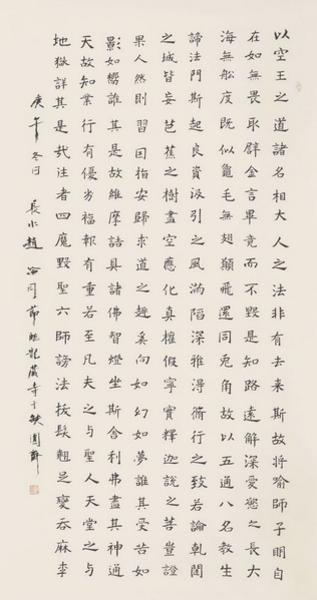 以空王之道諸名相大人之法非有去來斯故將喻師子明自
在如無畏取辟金言畢竟而不毀是知路遠解深愛慾之長大
海無船度既似龜毛無翅願飛還同兔角故以五通八名教生
諦法門斯起良資汲引之風滿陷深雅得脩行之致若論乾闥
之城皆妄芭蕉之樹盡空應化真權假寧實釋迦說之菩豈證
果人然則習因指安歸求道之趣奚向如幻如夢誰其受苦如
影如響誰其是故維摩詰具諸佛智燈坐斯舍利弗盡其神通
天故知業行有優劣福報有重若至凡夫之與聖人天堂之與
地獄詳其是哉注者四魔毀聖六師謗法拔髮翹足變吞麻李
庚午冬日 長水趙 同節臨龍藏寺